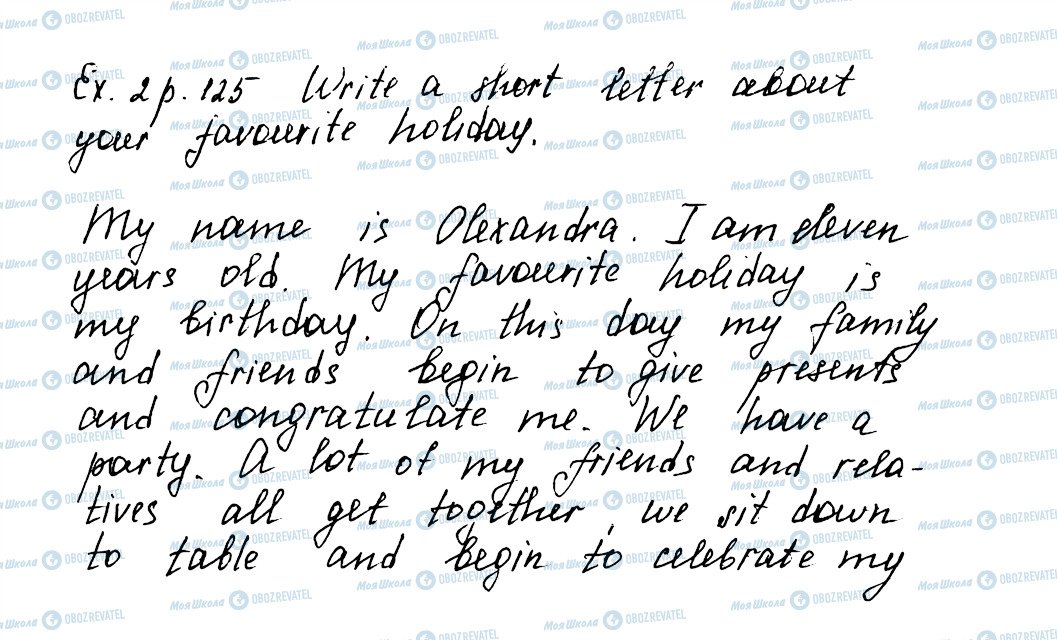 Ex. 2 p. 125 Write a short letter about
your favourite holiday.
My name is Olexandra. I am eleven
years old. My favourite holiday is
my birthday. On this day my family
and friends begin to give presents
and congratulate me. We have a
party. A lot of my friends and rela-
tives all get together, we sit down
to table and begin to celebrate my